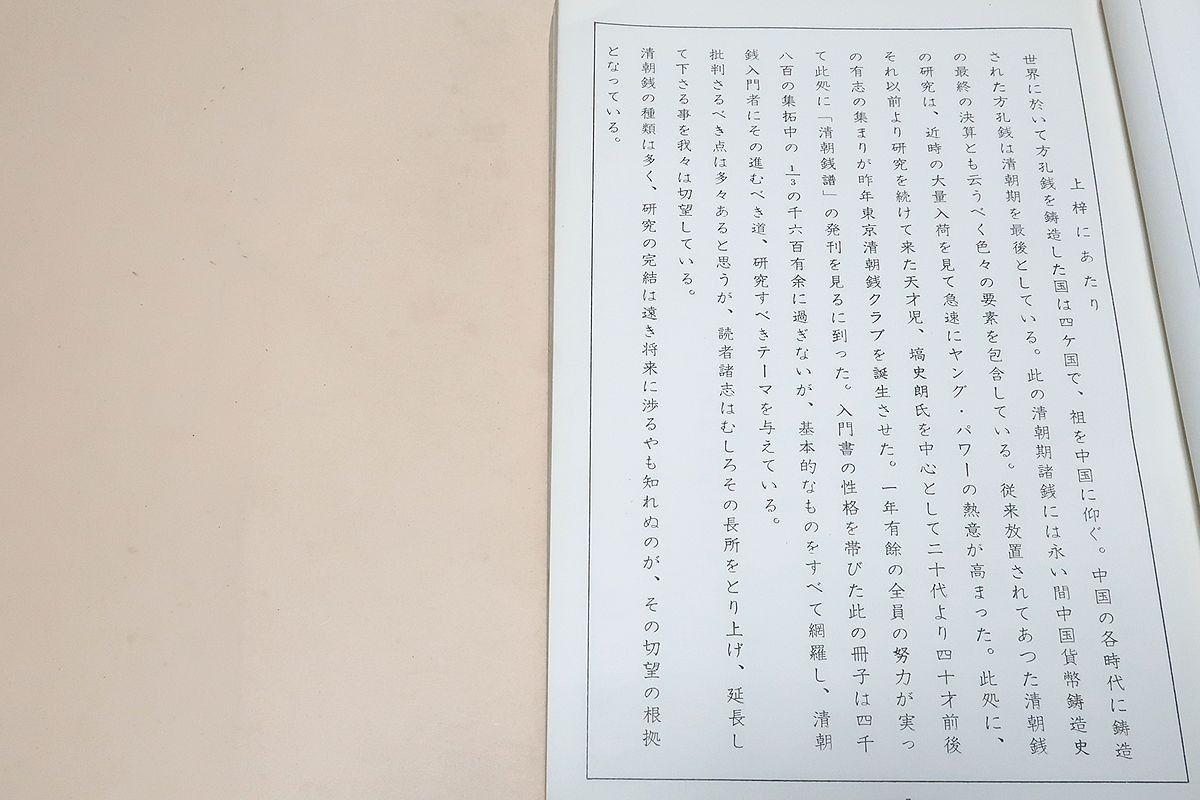 上梓にあたり
世界に於いて方孔銭を鋳造した国は四ケ国で、祖を中国に仰ぐ。中国の各時代に鋳造
された方孔銭は清朝期を最後としている。此の清朝期諸銭には永い間中国貨幣鋳造史
の最終の決算とも云うべく色々の要素を包含している。従来放置されてあつた清朝銭
の研究は、近時の大量入荷を見て急速にヤング・パワーの熱意が高まった。此処に、
それ以前より研究を続けて来た天才児、塙史朗氏を中心として二十代より四十才前後
の有志の集まりが昨年東京清朝銭クラブを誕生させた。一年有餘の全員の努力が実っ
て此処に「清朝銭譜」の発刊を見るに到った。入門書の性格を帯びた此の冊子は四千
八百の集拓中の1/3の千六百有余に過ぎないが、基本的なものをすべて網羅し、清朝
銭入門者にその進むべき道、研究すべきテーマを与えている。
批判さるべき点は多々あると思うが、読者諸志はむしろその長所をとり上げ、延長し
て下さる事を我々は切望している。
清朝銭の種類は多く、研究の完結は遠き将来に渉るやも知れぬのが、その切望の根拠
となっている。